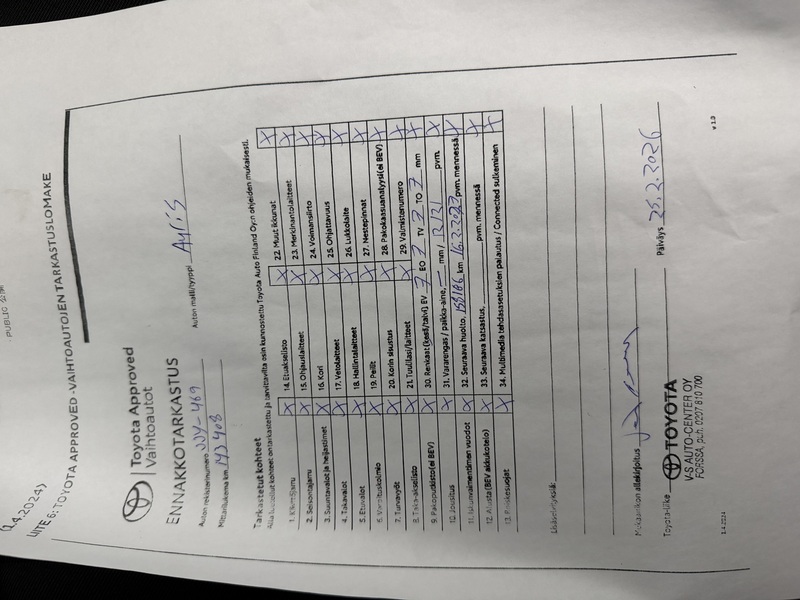 PUBLIC 公開
(1.4.2024)
LIITE 6: TOYOTA APPROVED -VAIHTOAUTOJEN TARKASTUSLOMAKE
Toyota Approved
Vaihtoautot
ENNAKKOTARKASTUS
Auton rekisterinumero JJV-469 Auton malli/tyyppi Ayris
Mittarilukema km 143408
Tarkastetut kohteet
Alla luetellut kohteet on tarkastettu ja tarvittavilta osin kunnostettu Toyota Auto Finland Oy:n ohjeiden mukaisesti.
1. Kilvet/sarju X 14. Etuakselisto X 22. Muut ikkunat X
2. Seisontajarru X 15. Ohjauslaitteet X 23. Merkinantolaitteet X
3. Suuntavalot ja heijastimet X 16. Kori X 24. Voimansiirto X
4. Takavalot X 17. Vetolaitteet X 25. Ohjattavuus X
5. Etuvalot X 18. Hallintalaitteet X 26. Lukkolaite X
6. Varoituskolmio X 19. Peilit X 27. Nestepinnat X
7. Turvavyöt X 20. Korin sisustus X 28. Pakokaasuanalyysi(ei BEV) X
8. Taka-akselisto X 21. Tuulilasi/laitteet X 29. Valmistenumero X
9. Pakoputkisto(ei BEV) X 30. Renkaat (kesä/talvi) EV 7 EO 7 TV 7 TO 7 mm X
10. Jousitus X 31. Vararengas / paikka-aine, — mm/ 12/21 pvm. X
11. Iskunvaimentimen vuodot X 32. Seuraava huolto, km pvm. mennessä X
12. Alusta(BEV akkukotelo) X 33. Seuraava katsastus, pvm. mennessä X
13. Roiskesuojat X 34. Multimedia tehdasasetuksien palautus / Connected sulkeminen X
Lisäselvityksiä:
Mekaanikon allekirjoitus Päiväys 25.2.2026
Toyota-liike TOYOTA
V-S AUTO-CENTER OY
FORSSA, puh. 0207 810 700
1.4.2024 v 1.0